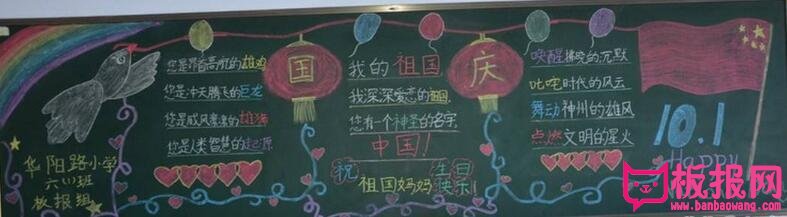 您是昂首高吭的雄鸡
您是冲天腾飞的巨龙
您是威风凛凛的雄狮
您是人类智慧的起源
华阳路小学
六(1)班
板报组
国
我的祖国
我深深爱恋的祖国
您有一个神圣的名字
中国!
祝
祖国妈妈
生日
快乐!
庆
唤醒拂晓的沉默
叱咤时代的风云
舞动神州的雄风
点燃文明的星火
10.1
Happy
板报网
www.banbaowang.com